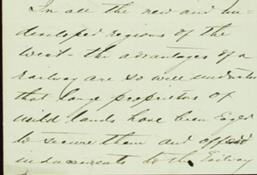 In all the new and un-
developed regions of the
West - the advantages of a
railway are so well understo
that large proprietors of
wild lands have been eager
to secure them and offered
inducements to the Railway